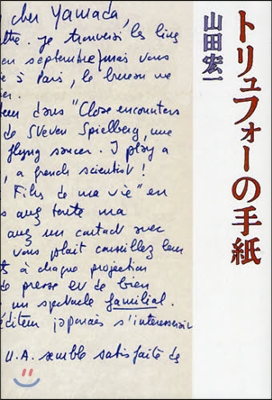 トリュフォーの手紙
山田宏一
cher Yamada,
. Je trouverai les livres
en septembre mais vous
à Paris, le bureau ne
dans "Close encounters
de Steven Spielberg, une
flying saucer. I play a
, a french scientist!
Films de ma vie" en
ma
un contact avec
vous plait conseillez leur
à chaque projection
de presse et de bien
un spectacle familial.
éditeur japonais s'interessait
U.A. semble satisfaite de